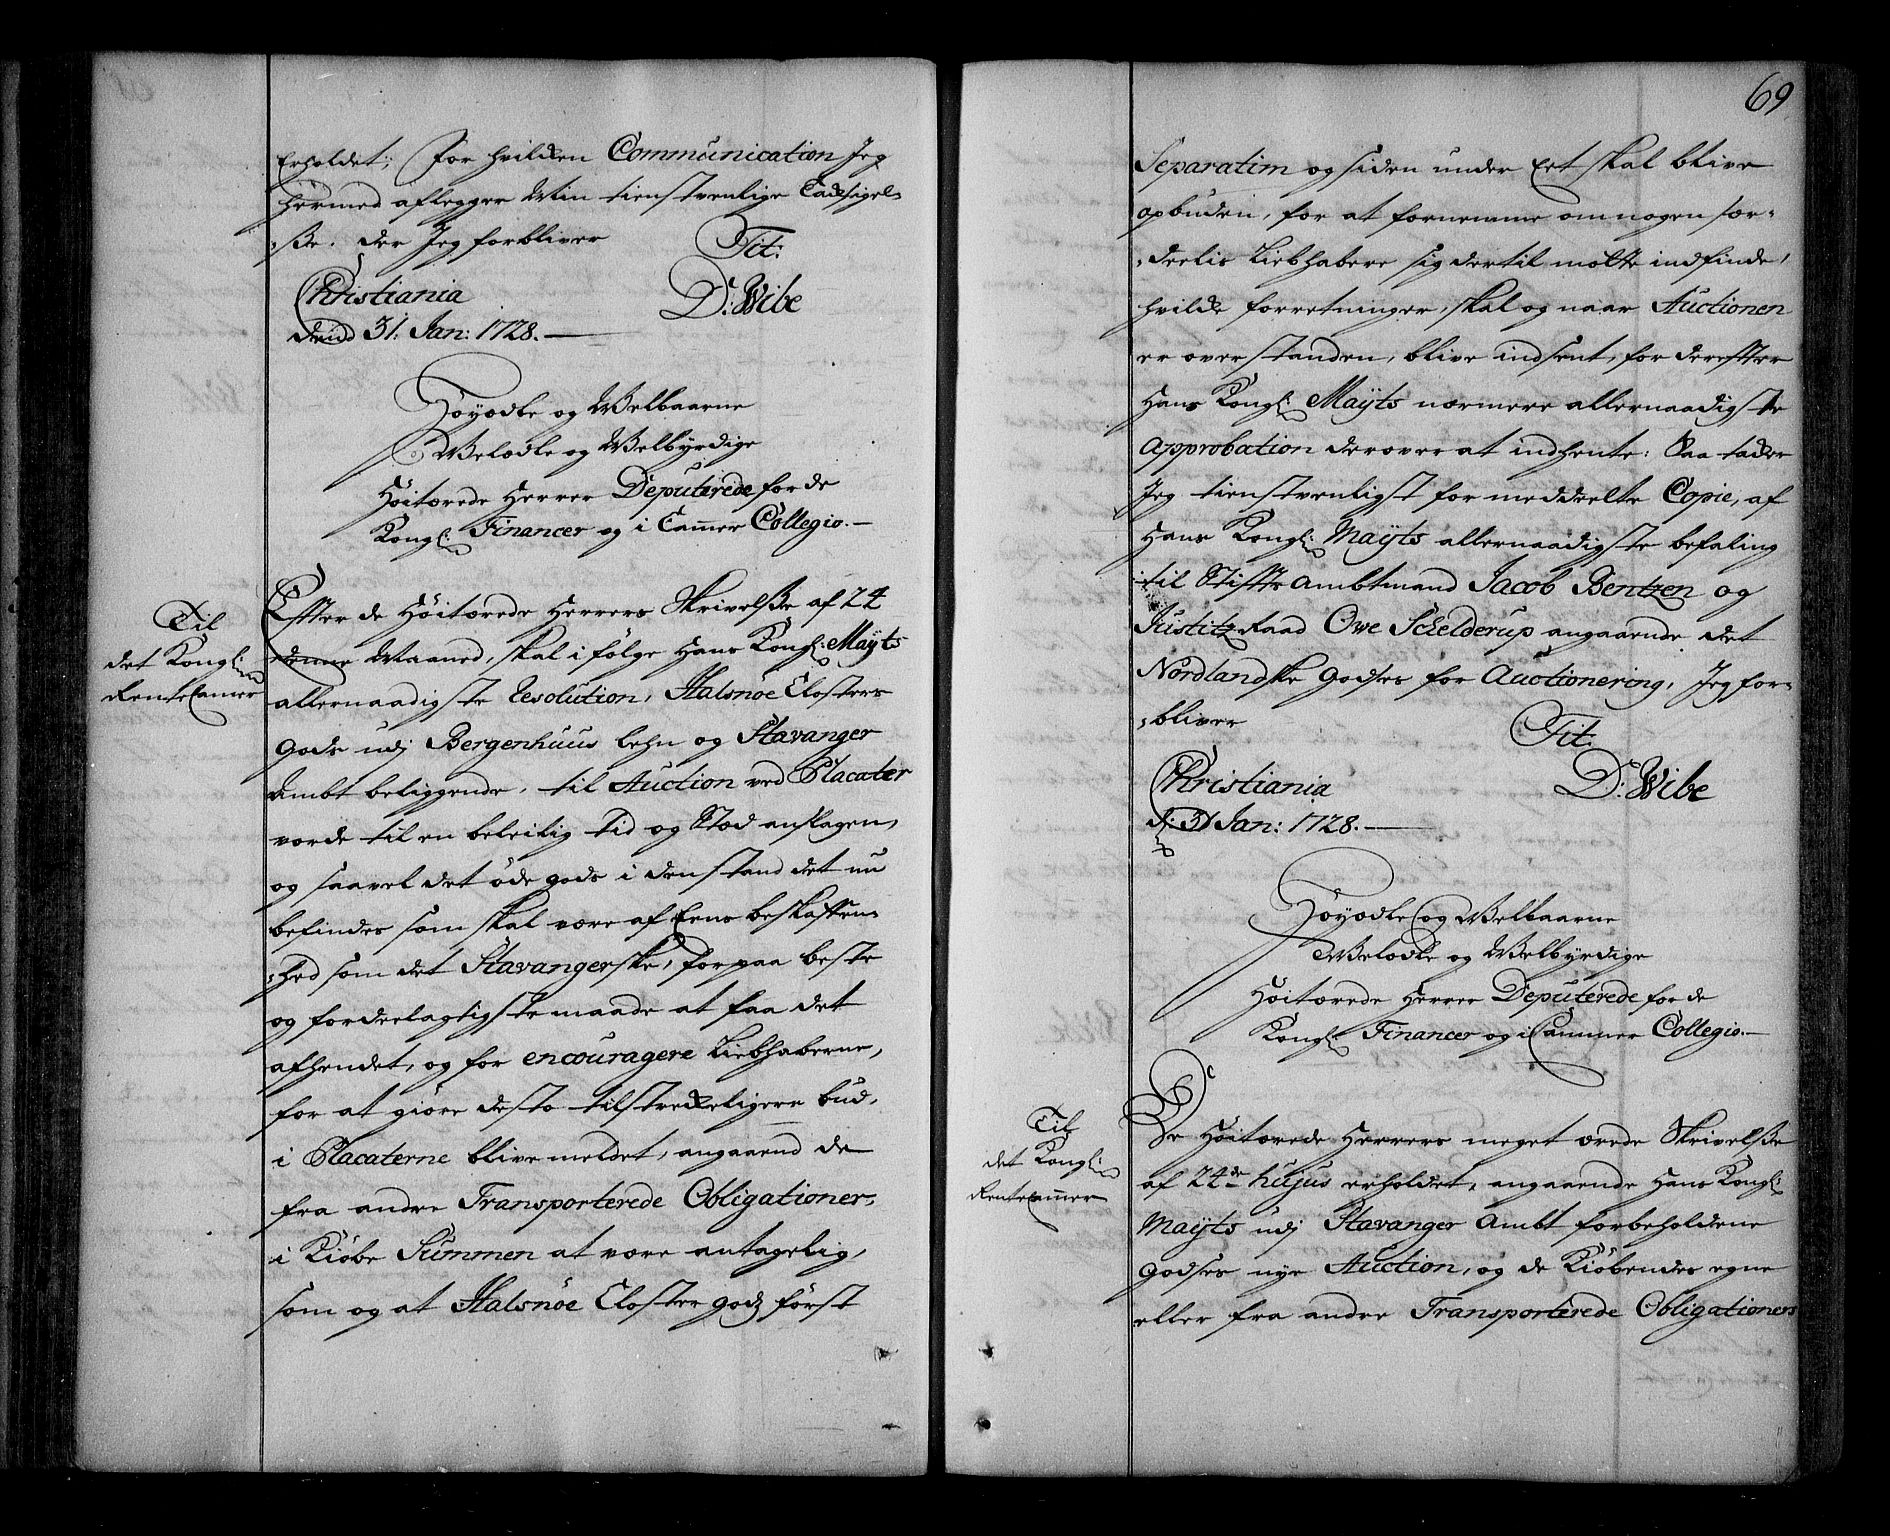 Erholdet; for hvilken Communication Jeg
hermed aflegger Min tienstvenlige Tacksigel-
-ße. der Jeg forbliver
Tit:
Christiania
D: Wibe
dend 31. Jan: 1728.
Höyædle og Welbaarne
Welædle og Welbyrdige
Høitærede Herrer Deputerede for de
Kongl: Financer og i Camer Collegio.
Til
det Kongl:
RenteCamer
Efter de Høitærede Herrers Skrivelße af 24
denne Maaned, skal i følge Hans Kongl: Mayts
allernaadigste Resolution, Halsnöe Closters
Gods udj Bergenhuus lehn og Stavanger
Ambt beliggende, til Auction ved Placater
vorde til en beleilig tid og Stæd anslagen,
og saavel det øde gods i den stand det nu
befindes som skal være af Eens beskaffen-
-hed som det Stavangerske, for paa beste
og fordeelagtigste maade at faa det
afhendet, og for encouragere Liebhaberne,
for at giøre desto tilstreckeligere bud,
i Placaterne blive meldet, angaaend de
fra andre Transporterede Obligationer,
i Kiøbe Summen at være antagelig,
som og at Halsnöe Closter godz først
69
Separatim og siden under Eet skal blive
opbuden, for at fornemme om nogen sær-
-deelis Liebhabere sig dertil motte indfinde,
hvilcke forretninger, skal og naar Auctionen
er overstanden, blive indsent, for derefter
Hans Kongl: Mayts nærmere allernaadigste
Approbation derover at indhente: Saa tacker
Jeg tienstvenligst for meddeelte Copie, af
Hans Kongl: Mayts allernaadigste befaling
til Stiffts Ambtmand Jacob Bentzen og
Justitz Raad Owe Schelderup angaaende det
Nordlandske Godses for Auctionering, Jeg for-
-bliver
Tit.
Christiania
D: Wibe
d: 31 Jan: 1728.
Höyædle og Welbaarne
Welædle og Welbyrdige
Høitærede Herrer Deputerede for de
Kongl: Financer og i Cammer Collegio.
Til
det Kongl:
RenteCamer
De Høitærede Herrers meget ærede Skrivelße
af 24de hujus erholdet, angaaende Hans Kongl:
Mayts udj Stavanger Ambt forbeholdene
Godses nye Auction, og de Kiøbendes egne
eller fra andre Transporterede Obligationers